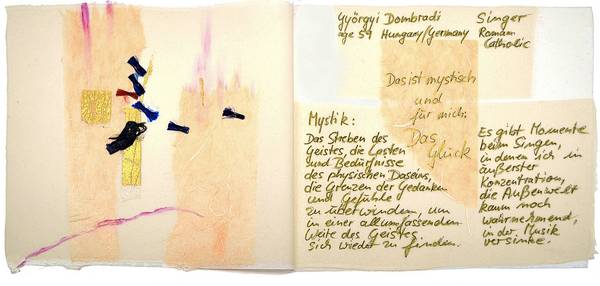 Györgyi Dombradi
age 59 Hungary/Germany
Singer
Roman
Catholic
Das ist mystisch
und
für mich:
Das
Glück
Mystik:
Das Streben des
Geistes, die Lasten
und Bedürfnisse
des physischen Daseins,
die Grenzen der Gedanken
und Gefühle
zu überwinden, um
in einer allumfassenden
Weite des Geistes
sich wieder zu finden.
Es gibt Momente
beim Singen,
in denen sich in
äußerster
Konzentration,
die Außenwelt
kaum noch
wahrnehmend,
in der Musik
versinke.